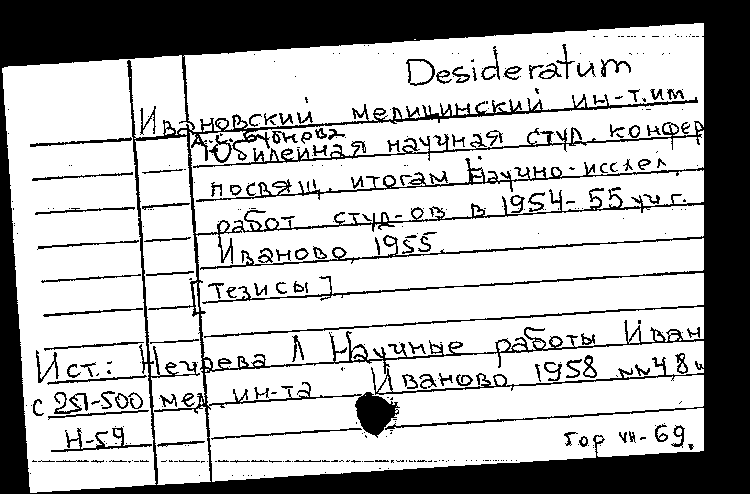 Desideratum
Ивановский медицинский ин-т.им.
А.С. Бубнова
Юбилейная научная студ. конфер
посвящ. итогам Научно-исслед.
работ студ-ов в 1954-55 уч г.
Иваново, 1955.
[Тезисы]
Ист.: Нечаева Л Научные работы Иван
с 251-500 мед. ин-та. Иваново, 1958 №№ 4,8
Н-59
Гор VII-69.